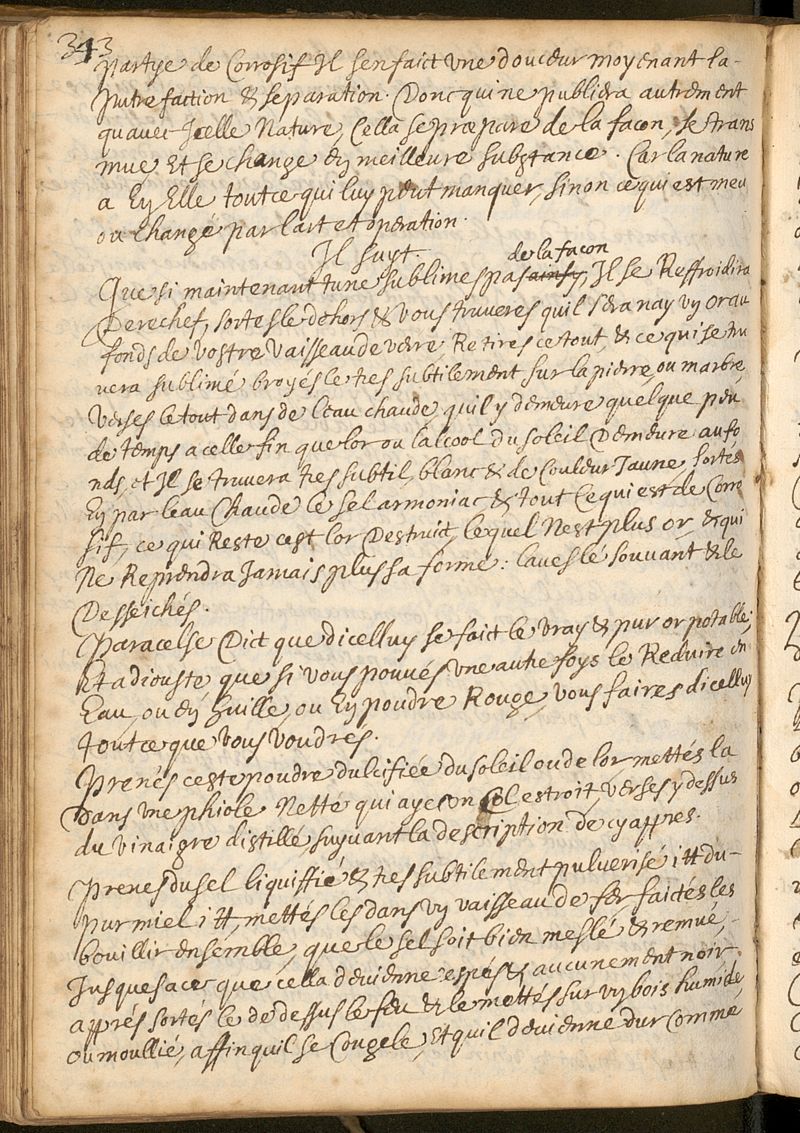 343
partye de Corrosif Il senfaict une douceur moyenant la-
putrefaction & separation. Doncquine publiera autrement
quavec Icelle Nature, Cella se præpare de la facon, se trans
mue Et se change En meilleure substance. Car la nature
a En Elle tout ce qui luy peut manquer, sinon ce qui est meu
ou Changé par lart et operation.
Il suyt.
de la facon
Que si maintenant tune sublimes pas ainsy, Il se Reffroidira
Derechef, sortes le dehors & vous truveres quil sera nay un or au
fonds de vostre vaisseau de verre, Retires ce tout, & ce qui se tru
vera sublimé broyés le tres subtilement sur la pierre, ou marbre,
verses le tout dans de leau chaude, quil y demeure quelque peu
de temps a celle fin que lor ou lalcool du soleil Demeure au fo
nds, et Il se truvera tres subtil, blanc & de Couleur Jaune, sortes
En par leau Chaude le sel armoniac, & tout Ce qui est de Corro
sif, ce qui Reste cest lor Destruit, lequel Nest plus or, & qui
Ne Reprendra Jamais plus sa forme: laves lé souvant & le
Desseichés.
Paracelse Dict que dicelluy se faict le vray & pur or potable;
Et adiouste, que si vous pouvés une autre foys le Reduire en
Eau, ou En huille, ou En poudre Rouge, vous faires dicelluy
tout ce que vous voudrés.
Prenés ceste poudre dulcifiée du soleil ou de lor mettés la
Dans une phiole Nette qui aye un Col estroit, verses y dessus
du vinaigre distillé, suyvant la description de cy appres.
Prenes du sel liquiffié & tres subtilement pulverisé i ℔ du-
pur miel i ℔, mettés les dans un vaisseau de fer faictes les
bouillir ensemble, que le sel soit bien meslé & remué,
Jusques a ce que cella devienne espés & aucunement noir.
apprés sortés le de dessus le feu & le mettés sur un bois humide,
ou moullié, affin quil se Congele, Et quil devienne dur Comme